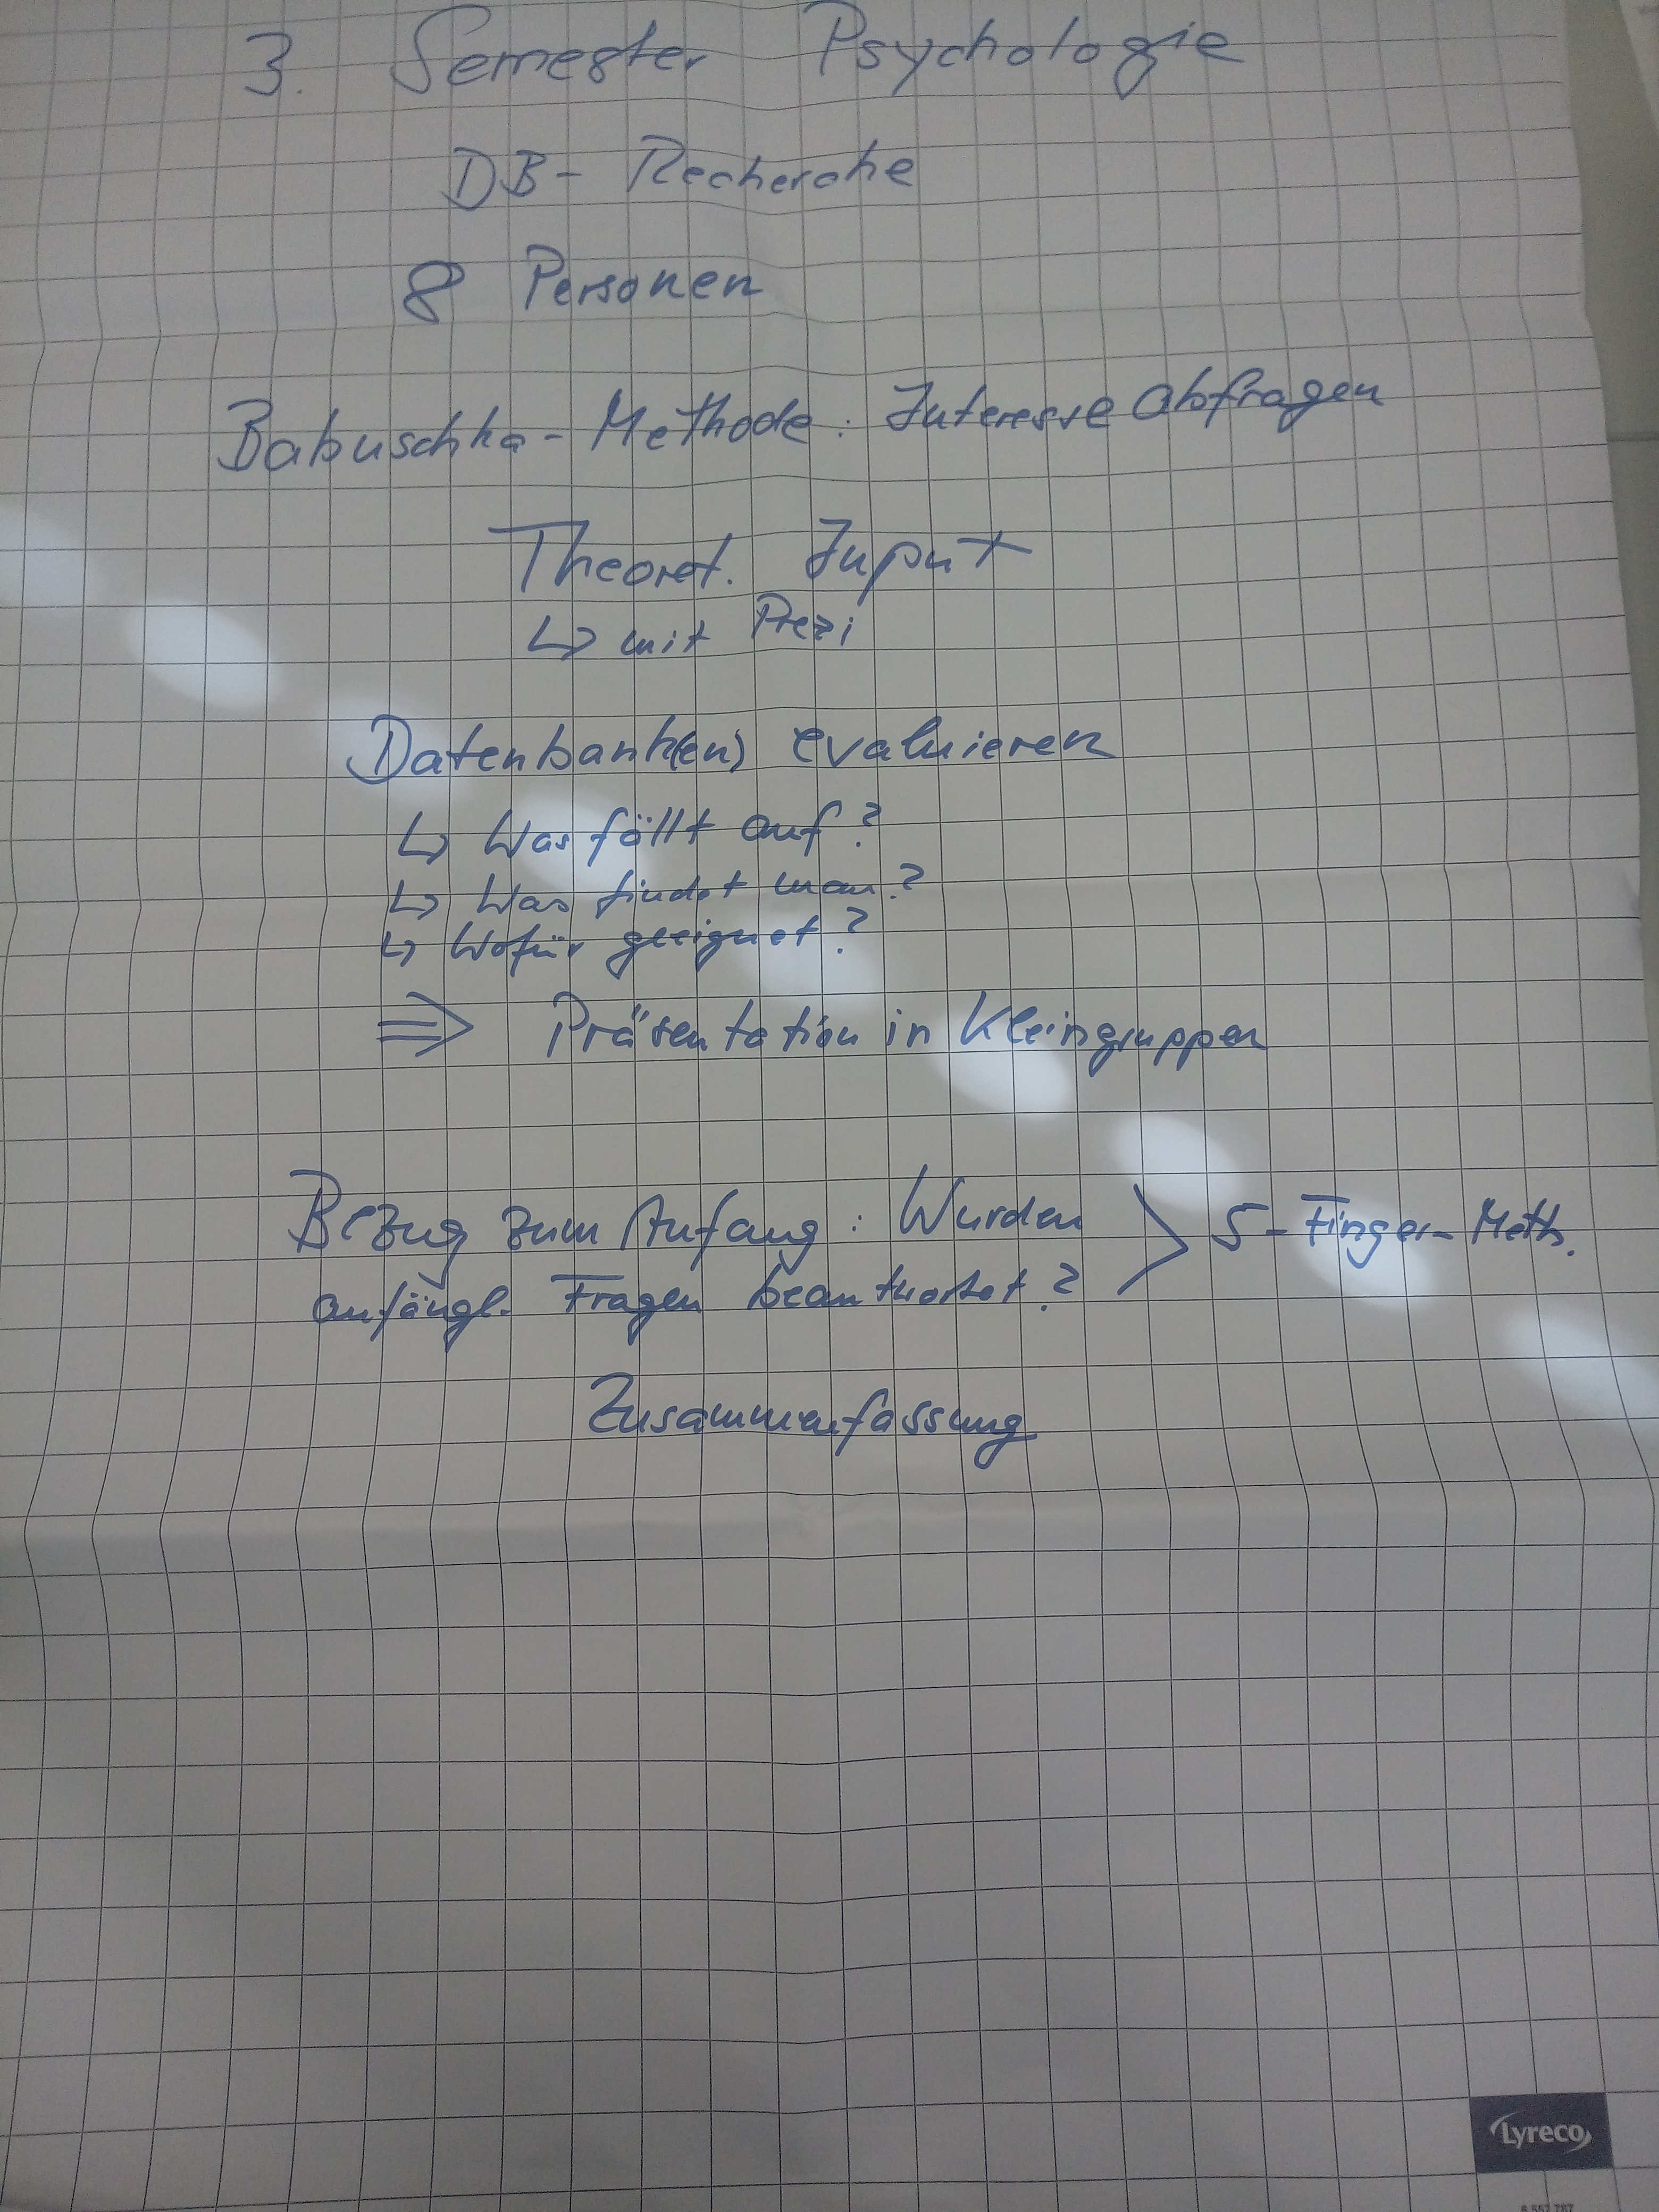 3. Semester Psychologie
DB - Recherche
8 Personen
Babuschka - Methode : Interesse abfragen
Theoret. Input
↳ mit Prezi
Datenbank(en) evaluieren
↳ Was fällt auf ?
↳ Was findet man ?
↳ Wofür geeignet ?
⇒ Präsentation in Kleingruppen
Bezug zum Anfang : Wurden
anfängl. Fragen beantwortet ? > 5 - Finger - Meth.
Zusammenfassung
Lyreco